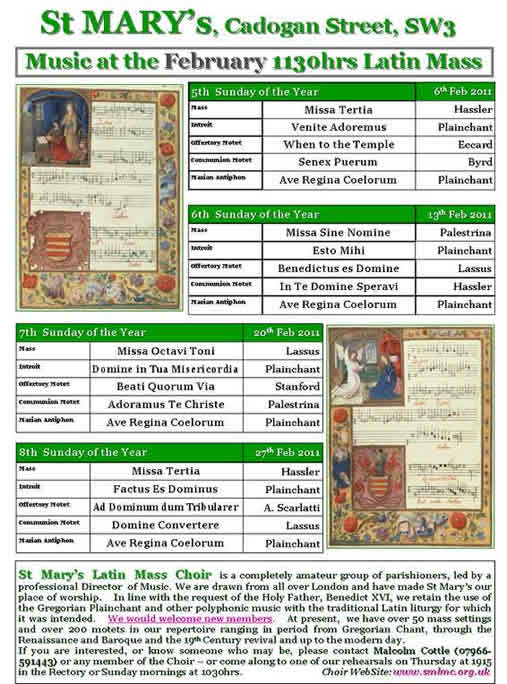 St MARY's, Cadogan Street, SW3
Music at the February 1130hrs Latin Mass
5th Sunday of the Year 6th Feb 2011
Mass Missa Tertia Hassler
Introit Venite Adoremus Plainchant
Offertory Motet When to the Temple Eccard
Communion Motet Senex Puerum Byrd
Marian Antiphon Ave Regina Coelorum Plainchant
6th Sunday of the Year 13th Feb 2011
Mass Missa Sine Nomine Palestrina
Introit Esto Mihi Plainchant
Offertory Motet Benedictus es Domine Lassus
Communion Motet In Te Domine Speravi Hassler
Marian Antiphon Ave Regina Coelorum Plainchant
7th Sunday of the Year 20th Feb 2011
Mass Missa Octavi Toni Lassus
Introit Domine in Tua Misericordia Plainchant
Offertory Motet Beati Quorum Via Stanford
Communion Motet Adoramus Te Christe Palestrina
Marian Antiphon Ave Regina Coelorum Plainchant
8th Sunday of the Year 27th Feb 2011
Mass Missa Tertia Hassler
Introit Factus Es Dominus Plainchant
Offertory Motet Ad Dominum dum Tribularer A. Scarlatti
Communion Motet Domine Convertere Lassus
Marian Antiphon Ave Regina Coelorum Plainchant
St Mary's Latin Mass Choir is a completely amateur group of parishioners, led by a
professional Director of Music. We are drawn from all over London and have made St Mary's our
place of worship. In line with the request of the Holy Father, Benedict XVI, we retain the use of
the Gregorian Plainchant and other polyphonic music with the traditional Latin liturgy for which
it was intended. We would welcome new members. At present, we have over 50 mass settings
and over 200 motets in our repertoire ranging in period from Gregorian Chant, through the
Renaissance and Baroque and the 19th Century revival and up to the modern day.
If you are interested, or know someone who may be, please contact Malcolm Cottle (07966-
591443) or any member of the Choir – or come along to one of our rehearsals on Thursday at 1915
in the Rectory or Sunday mornings at 1030hrs. Choir WebSite: www.smlmc.org.uk